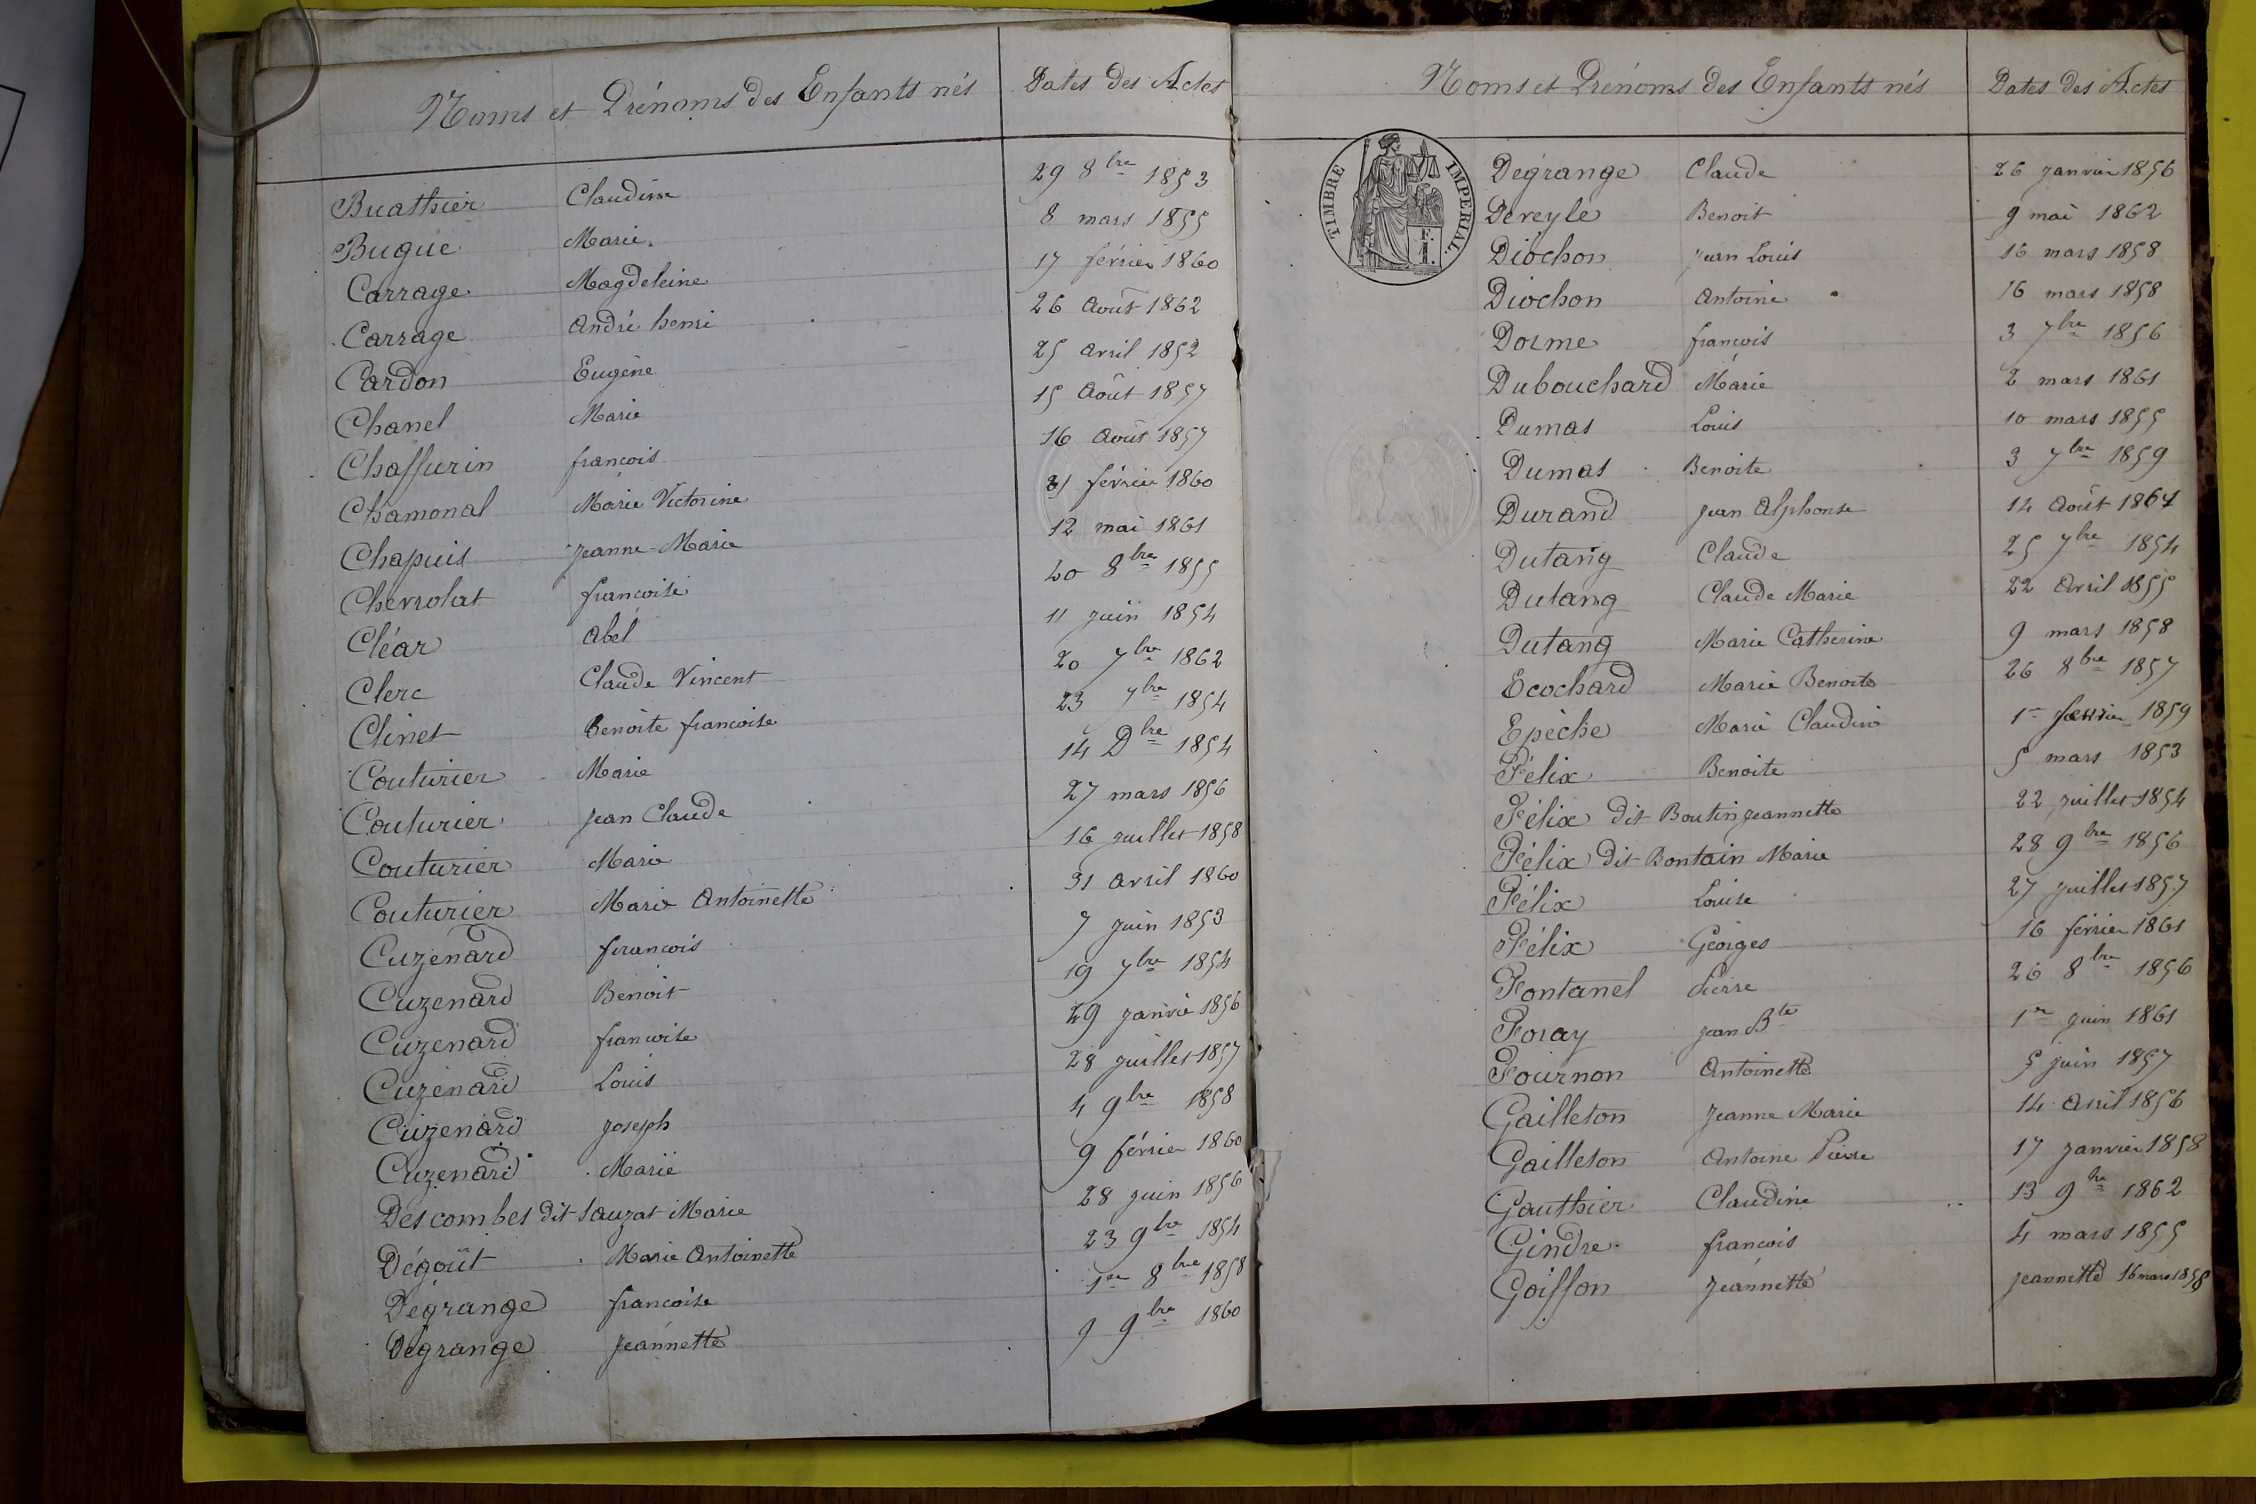 Noms et Prénoms des Enfants nés Dates des Actes
Buathier Claudine 29 8bre 1853
Bugue Marie 8 mars 1855
Carrage Magdeleine 17 février 1860
Carrage André henri 26 Août 1862
Cardon Eugène 25 avril 1852
Chanel Marie 15 Août 1857
Chaffurin francois 16 Août 1857
Chamonal Marie Victorine 21 février 1860
Chapuis Jeanne-Marie 12 mai 1861
Chevrolat francoise 20 8bre 1855
Cléar Abel 11 juin 1854
Clerc Claude Vincent 20 7bre 1862
Clinet Benoite francoise 23 7bre 1854
Couturier Marie 14 Dbre 1854
Couturier Jean Claude 27 mars 1856
Couturier Marie 16 juillet 1858
Couturier Marie Antoinette 31 avril 1860
Cuzenard francois 7 juin 1853
Cuzenard Benoit 19 7bre 1854
Cuzenard francoise 29 janvié 1856
Cuzenard Louis 28 juillet 1857
Cuzenard Joseph 4 9bre 1858
Cuzenard Marie 9 février 1860
Descombes dit Sauzat Marie 28 juin 1856
Dégoût Marie Antoinette 23 9bre 1854
Dégrange francoise 1er 8bre 1858
Dégrange Jeannette 9 9bre 1860
Noms et Prénoms des Enfants nés Dates des Actes
TIMBRE IMPERIAL
1 F.
Dégrange Claude 26 janvier 1856
Dereyle Benoit 9 mai 1862
Diochon jean Louis 16 mars 1858
Diochon Antoine 16 mars 1858
Dorme francois 3 7bre 1856
Dubouchard Marie 2 mars 1861
Dumas Louis 10 mars 1855
Dumas Benoite 3 7bre 1859
Durand Jean Alphonse 14 Août 1861
Dutang Claude 25 7bre 1854
Dutang Claude Marie 22 Avril 1855
Dutang Marie Catherine 9 mars 1858
Ecochard Marie Benoite 26 8bre 1857
Epèche Marie Claudine 1er 1859
Félix Benoite 5 mars 1853
Félix dit Boutin Jeannette 22 juillet 1854
Félix dit Bontain Marie 28 9bre 1856
Félix Louise 27 juillet 1857
Félix Georges 16 février 1861
Fontanel Pierre 26 8bre 1856
Foray Jean Bte 1er juin 1861
Fournon Antoinette 5 juin 1857
Gailleton Jeanne Marie 14 Avril 1856
Gailleton Antoine Pierre 17 janvier 1858
Gauthier Claudine 13 9bre 1862
Gindre francois 4 mars 1855
Goiffon Jeannette Jeannette 16 mars 1858